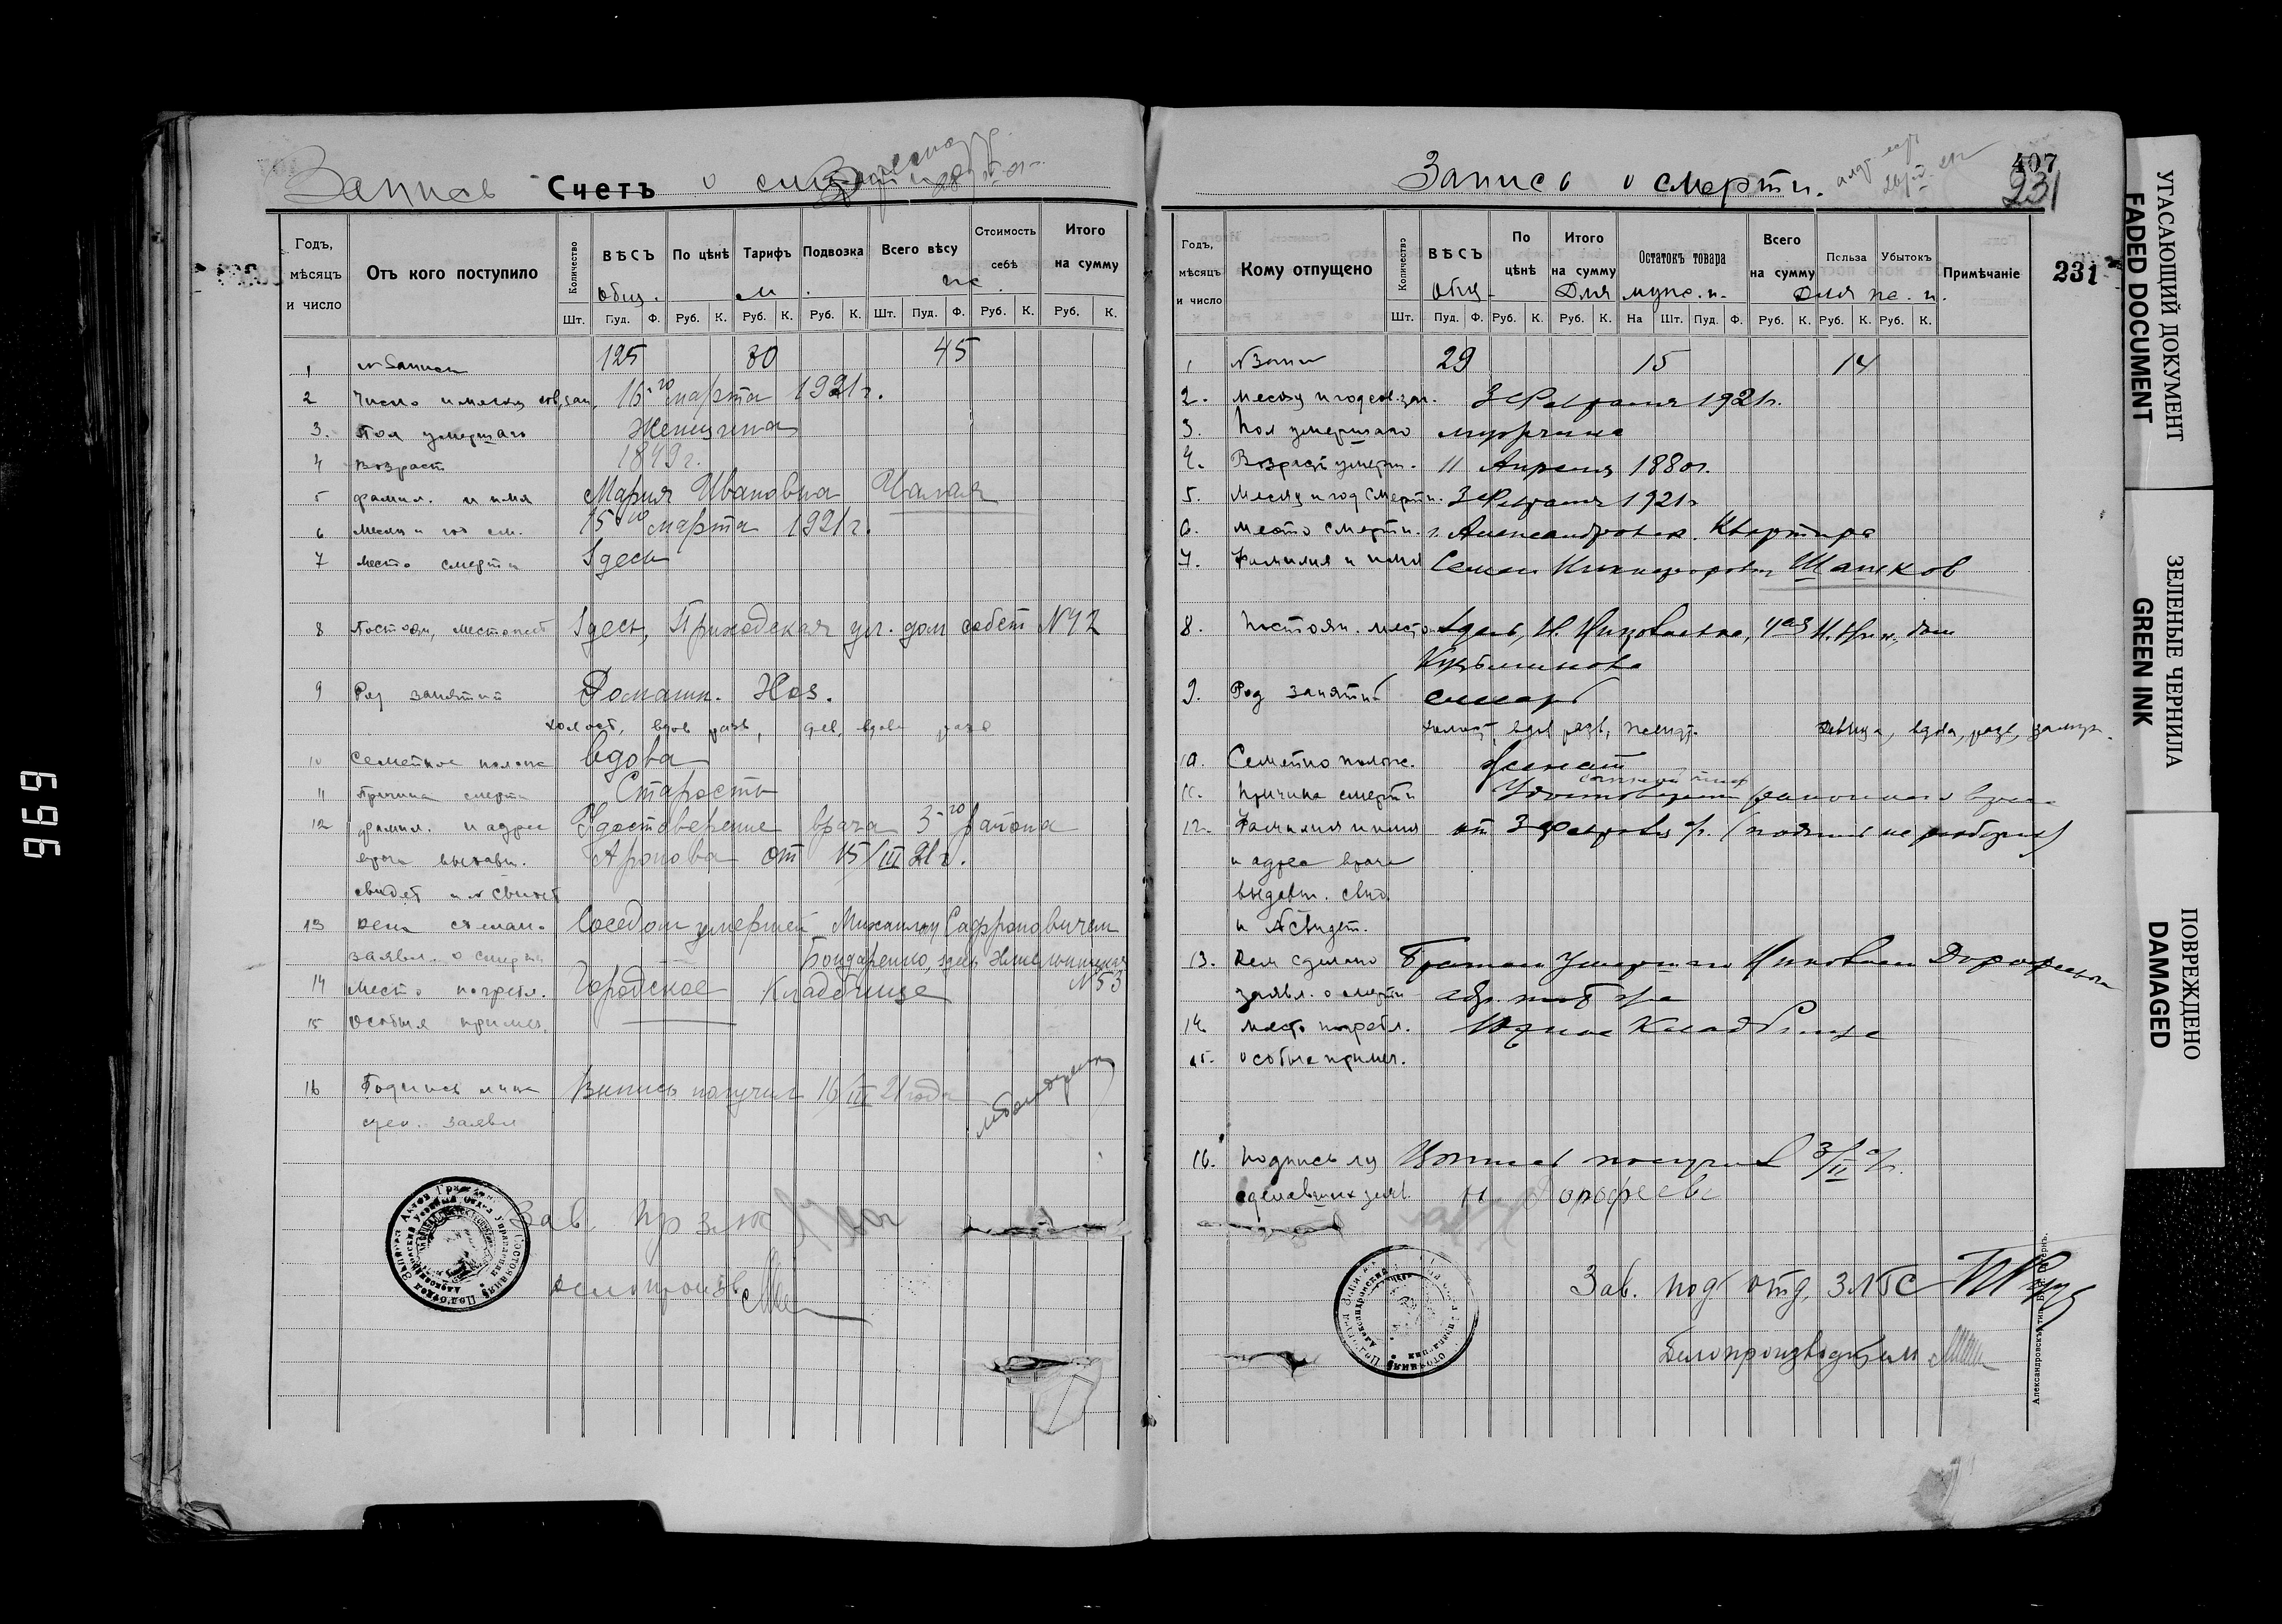 Запись Счетъ о
Годъ, мѣсяцъ и число
Отъ кого поступило
Количество
ВѢСЪ
По цѣнѣ
Тарифъ
Подвозка
Всего вѣсу
Стоимость себѣ
Итого на сумму
Общ. м. ж.
Шт. Пуд. Ф. Руб. К. Руб. К. Руб. К. Шт. Пуд. Ф. Руб. К. Руб. К.
1 № Записи 125 30 45
2 Число и месяц сов. зап. 16-го марта 1921 г.
3. Пол умершаго Женщина
4 Возраст 1849 г.
5 фамил. и имя Мария Ивановна
6 Месяц и год см. 15-го марта 1921 г.
7 Место смерти Здесь
8 Постоян. местожит Здесь, Приходская ул. дом собст №42
9 Род занятий Домашн. Хоз.
холост, вдов разв, дев, вдова разв
10 Семейное полож Вдова
11 Причина смерти Старость
12 фамил. и адрес Удостоверение врача 3-го района
врача выдавш. Аронова от 15/III 21 г.
свидет и № свидет
13 Кем сделан. Соседом умершей Михаилом Сафроновичем
заявл. о смерти Бондаренко, здесь №53
14 Место погребл. Городское Кладбище
15 Особыя примеч.
16 Подпись лица Выпись получил 16/III 21 года
сдел. заявл
Зав.
231
Запись о смерти.
407
231
Годъ, мѣсяцъ и число
Кому отпущено
Количество
ВѢСЪ
По цѣнѣ
Итого на сумму
Остатокъ товара
Всего на сумму
Польза
Убытокъ
Примѣчаніе
Общ. Для муж. п. Для же. п.
Шт. Пуд. Ф. Руб. К. Руб. К. На Шт. Пуд. Ф. Руб. К. Руб. К. Руб. К.
1 № Запи 29 15 14
2. Месяц и год сов. зап. 3 Февраля 1921 г.
3. Пол умершаго мужчина
4. Возраст умерш. 11 Апреля 1880 г.
5. Месяц и год смерти. 3 Февраля 1921 г
6. Место смерти. г. Александровск. Квартира
7. Фамилия и имя Семен Никифорович Шашков
8. Постоян. место Здесь,
9. Род занятий слесарь
холост, вдов разв, женат. девица, вдова, разв, замуж.
10. Семейно полож. Женат
11. Причина смерти сыпной тиф
Удостоверение районнаго врача
12. Фамилия и имя от 3 Февраля с/г. (подпись не разборчива)
и адрес врача
выдавш. свид.
и № свидет.
13. Кем сделано Братом Умершаго Дорофеевым
заявл. о смерти
14. Место погребл. Кладбище
15. Особые примеч.
16. Подпись лиц Выпись получил 3/II с/г.
сделавших заяв. Н Дорофеев
Зав. под отд. ЗАГС
Делопроизводитель
УГАСАЮЩИЙ ДОКУМЕНТ
FADED DOCUMENT
ЗЕЛЕНЫЕ ЧЕРНИЛА
GREEN INK
ПОВРЕЖДЕНО
DAMAGED
969